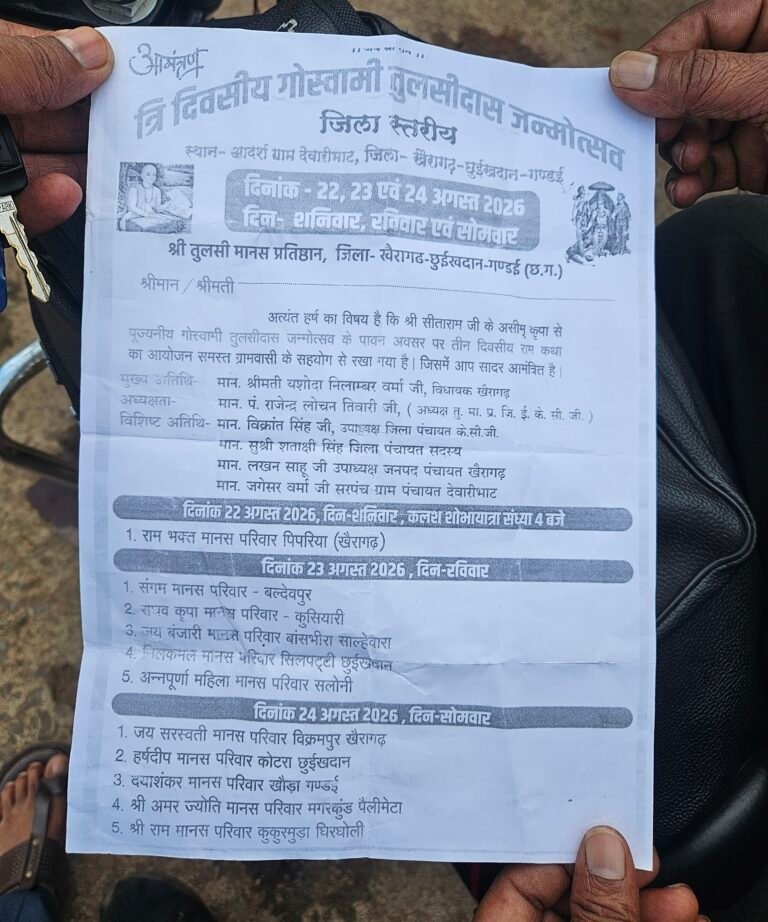 आमंत्रण
त्रि दिवसीय गोस्वामी तुलसीदास जन्मोत्सव
जिला स्तरीय
स्थान- आदर्श ग्राम देवारीभाट, जिला- खैरागढ़-छुईखदान-गण्डई
दिनांक - 22, 23 एवं 24 अगस्त 2026
दिन- शनिवार, रविवार एवं सोमवार
श्री तुलसी मानस प्रतिष्ठान, जिला- खैरागढ-छुईखदान-गण्डई (छ.ग.)
श्रीमान / श्रीमती
अत्यंत हर्ष का विषय है कि श्री सीताराम जी के असीम् कृपा से
पूज्यनीय गोस्वामी तुलसीदास जन्मोत्सव के पावन अवसर पर तीन दिवसीय राम कथा
का आयोजन समस्त ग्रामवासी के सहयोग से रखा गया है। जिसमें आप सादर आमंत्रित है।
मुख्य अतिथि- मान. श्रीमती यशोदा निलाम्बर वर्मा जी, विधायक खैरागढ़
अध्यक्षता- मान. पं. राजेन्द्र लोचन तिवारी जी, ( अध्यक्ष तु. मा. प्र. जि. ई. के. सी. जी. )
विशिष्ट अतिथि- मान. विक्रांत सिंह जी, उपाध्यक्ष जिला पंचायत के.सी.जी.
मान. सुश्री शताक्षी सिंह जिला पंचायत सदस्य
मान. लखन साहू जी उपाध्यक्ष जनपद पंचायत खैरागढ़
मान. जगेसर वर्मा जी सरपंच ग्राम पंचायत देवारीभाट
दिनांक 22 अगस्त 2026, दिन-शनिवार, कलश शोभायात्रा संध्या 4 बजे
1. राम भक्त मानस परिवार पिपरिया (खैरागढ़)
दिनांक 23 अगस्त 2026, दिन-रविवार
1. संगम मानस परिवार - बल्देवपुर
2. राघव कृपा मानस परिवार - कुसियारी
3. जय बंजारी मानस परिवार बांसभीरा साल्हेवारा
4. निलकमल मानस परिवार सिलपट्टी छुईखदान
5. अन्नपूर्णा महिला मानस परिवार सलोनी
दिनांक 24 अगस्त 2026, दिन-सोमवार
1. जय सरस्वती मानस परिवार विक्रमपुर खैरागढ़
2. हर्षदीप मानस परिवार कोटरा छुईखदान
3. दयाशंकर मानस परिवार खौड़ा गण्डई
4. श्री अमर ज्योति मानस परिवार मगरकुंड पैलीमेटा
5. श्री राम मानस परिवार कुकुरमुड़ा घिरघोली